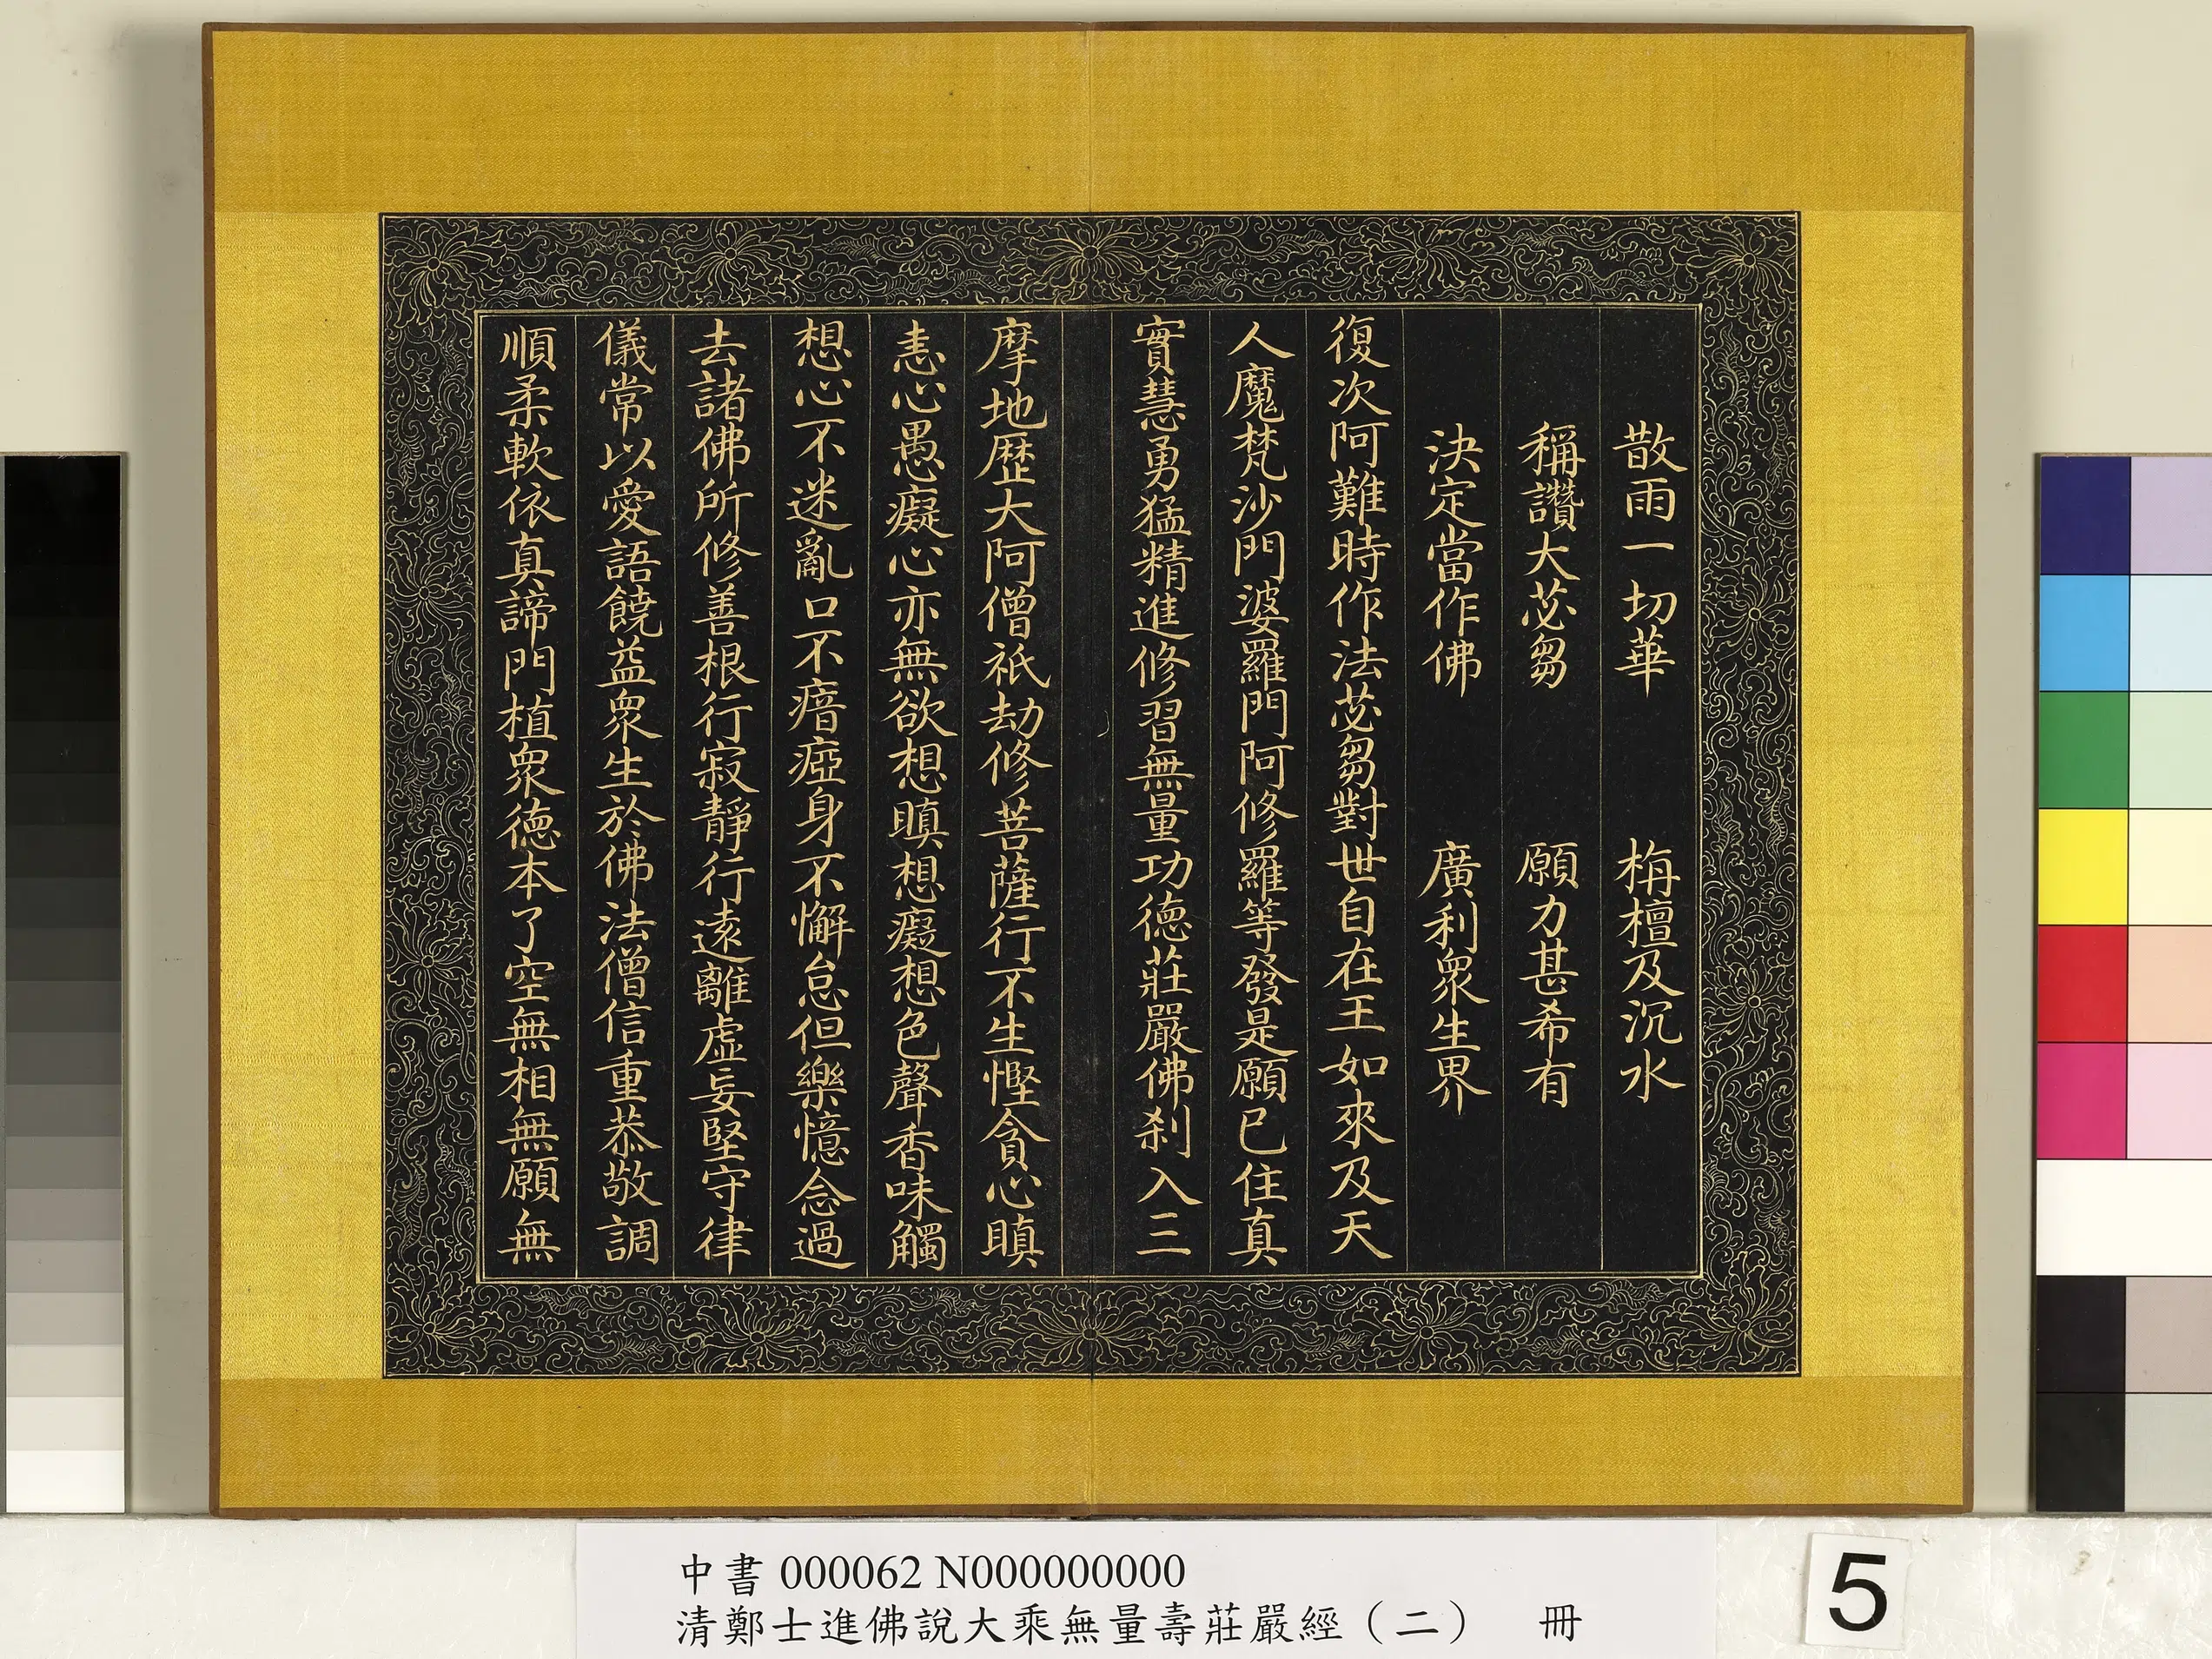 散雨一切華　　栴檀及沉水
稱讚大苾芻　　願力甚希有
決定當作佛　　廣利衆生界
復次阿難時作法苾芻對世自在王如來及天
人魔梵沙門婆羅門阿修羅等發是願已住真
實慧勇猛精進修習無量功德莊嚴佛刹入三
摩地歷大阿僧祇劫修菩薩行不生慳貪心瞋
恚心愚癡心亦無欲想瞋想癡想色聲香味觸
想心不迷亂口不瘖瘂身不懈怠但樂憶念過
去諸佛所修善根行寂靜行遠離虛妄堅守律
儀常以愛語饒益衆生於佛法僧信重恭敬調
順柔軟依真諦門植衆德本了空無相無願無
中書 000062 N000000000
清鄭士進佛說大乘無量壽莊嚴經（二）　冊
5